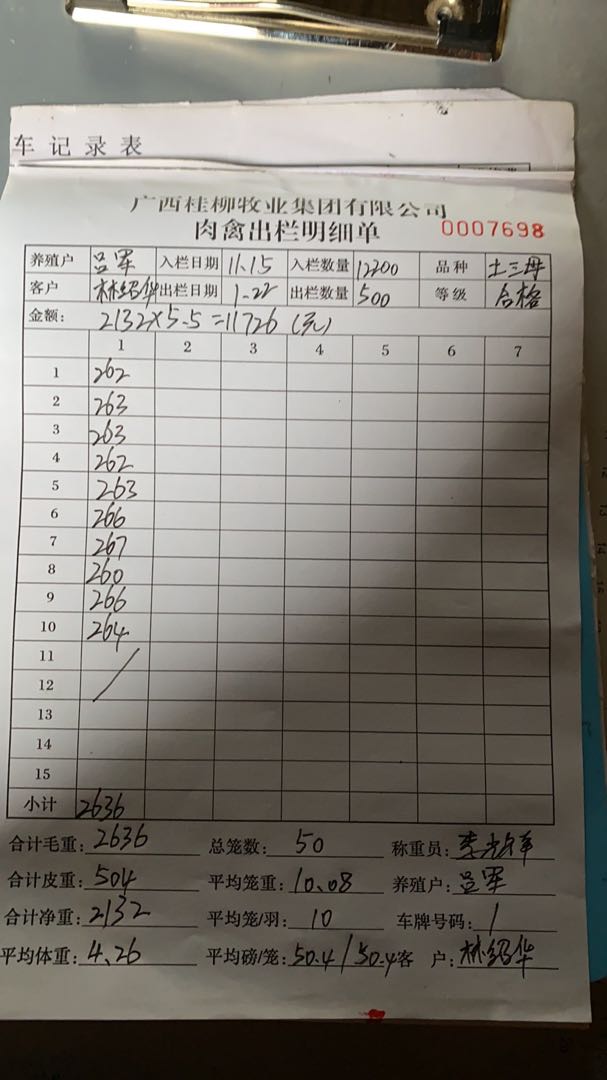 车记录表
广西桂柳牧业集团有限公司
肉禽出栏明细单 0007698
养殖户 吕军 入栏日期 11.15 入栏数量 12200 品种 土三母
客户 林绍华 出栏日期 1-22 出栏数量 500 等级 合格
金额: 2132×5.5=11726(元)
1 2 3 4 5 6 7
1 262
2 263
3 263
4 262
5 263
6 266
7 267
8 260
9 266
10 264
11
12
13
14
15
小计 2636
合计毛重: 2636 总笼数: 50 称重员:
合计皮重: 504 平均笼重: 10.08 养殖户: 吕军
合计净重: 2132 平均笼/羽: 10 车牌号码: /
平均体重: 4.26 平均磅/笼: 50.4/50.4 客户: 林绍华